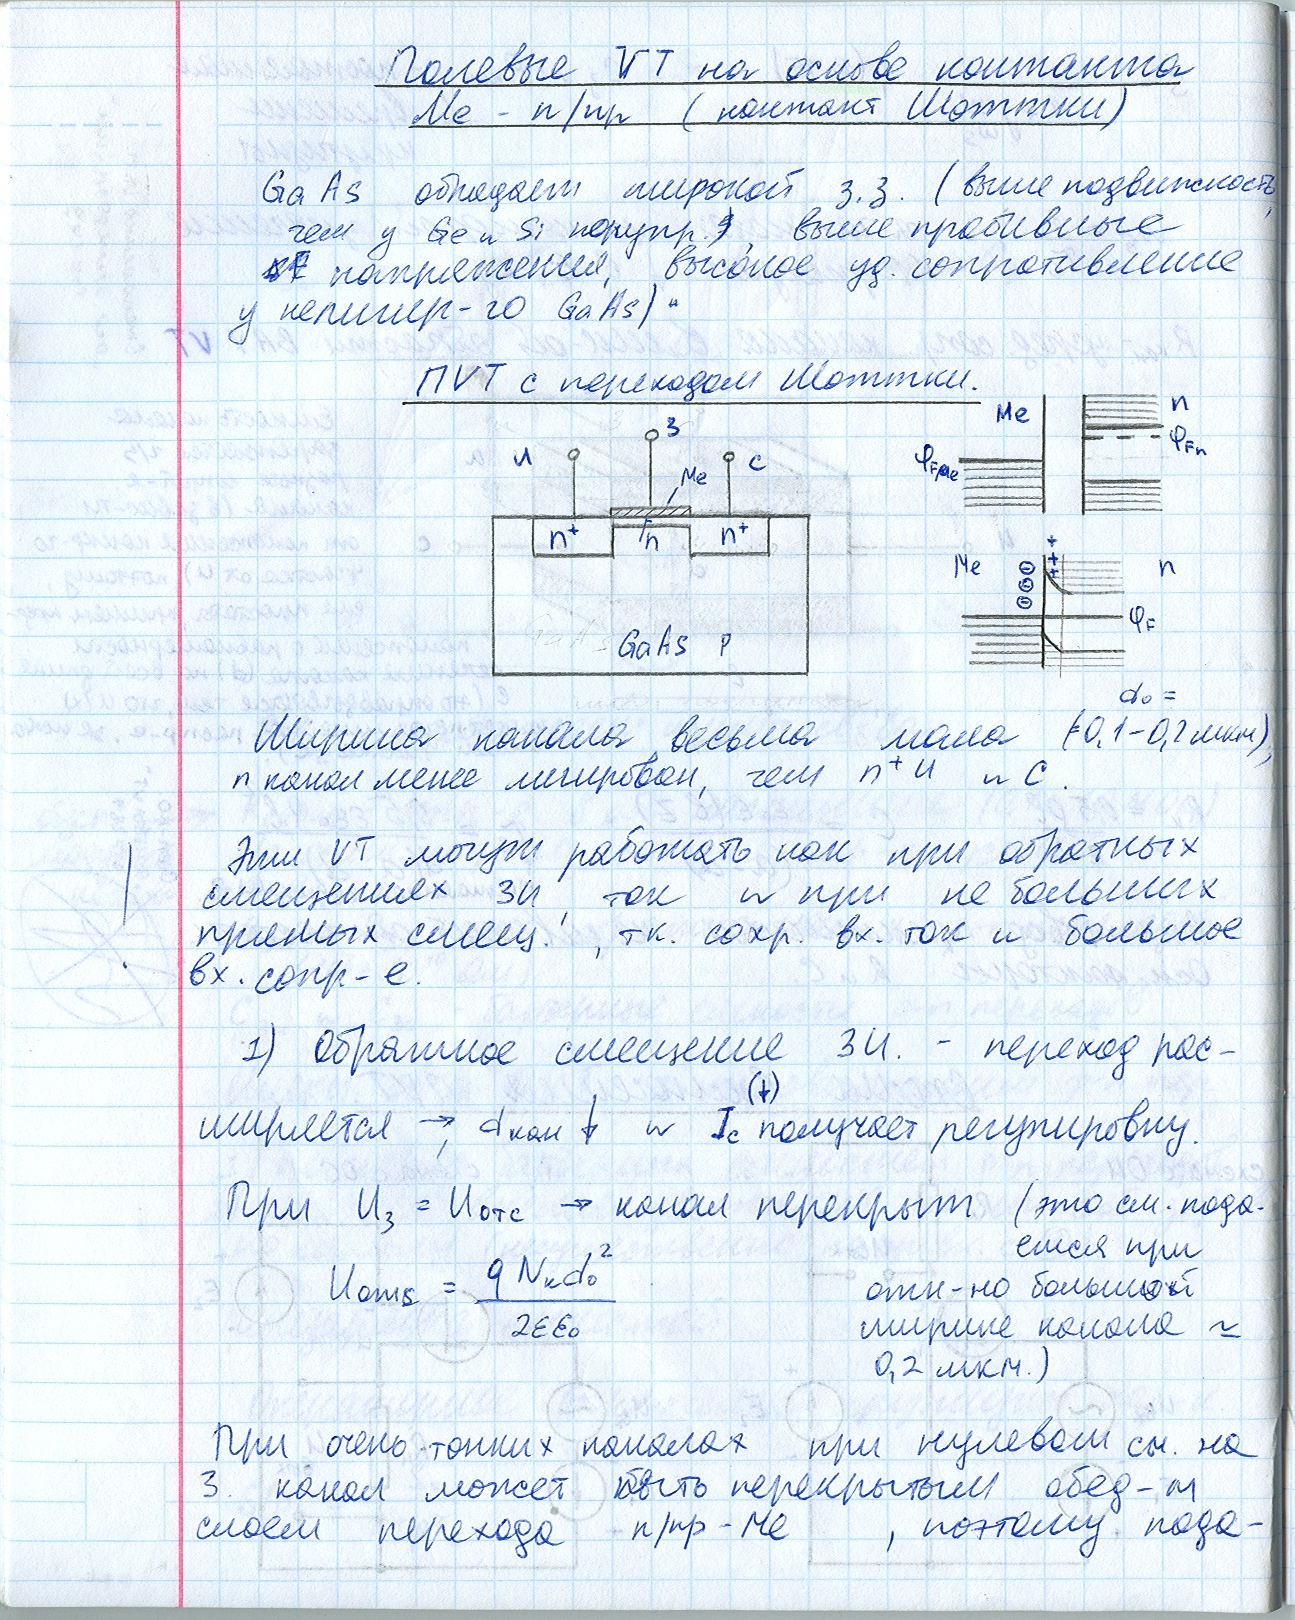 Полевые VT на основе контакта
Ме - п/пр (контакт Шоттки)
GaAs обладает широкой з.з. (выше подвижность,
чем у Ge и Si полупр.), выше пробивные
напряжения, высокое уд. сопротивление
у нелигир-го GaAs)
ПVT с переходом Шоттки.
И
З
С
Me
n+
n
n+
GaAs p
Me
n
φFме
φFn
Me
n
+ + +
φF
d₀ =
Ширина канала весьма мала (=0,1-0,2 мкм),
n канал менее легирован, чем n+ И и С.
! Эти VT могут работать как при обратных
смещениях ЗИ, так и при небольших
прямых смещ., тк. сохр. вх. ток и большое
вх. сопр-е.
1) Обратное смещение ЗИ. - переход рас-
(↓)
ширяется →, dкан ↓ и Ic получает регулировку.
При Uз = Uотс → канал перекрыт (это см. пода-
ется при
отн-но большой
ширине канала ≃
0,2 мкм.)
Uотс = q Nк d₀² / 2εε₀
При очень тонких каналах при нулевом см. на
З. канал может быть перекрытым обед-м
слоем перехода п/пр-Ме, поэтому пода-